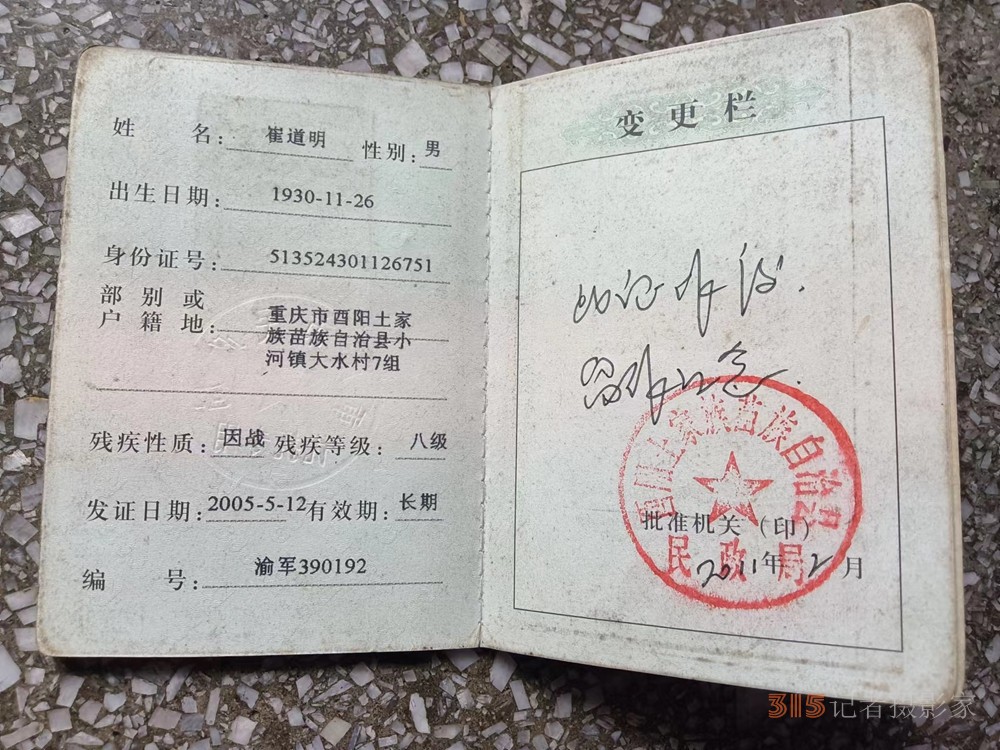 姓 名: 崔道明 性别: 男
出生日期: 1930-11-26
身份证号: 513524301126751
部别或
户籍地: 重庆市酉阳土家
族苗族自治县小
河镇大水村7组
残疾性质: 因战 残疾等级: 八级
发证日期: 2005-5-12 有效期: 长期
编 号: 渝军390192
变更栏
此证作废.
留作纪念.
土家族苗族自治县
批准机关(印)
民政局
2011年12月
315记者摄影家